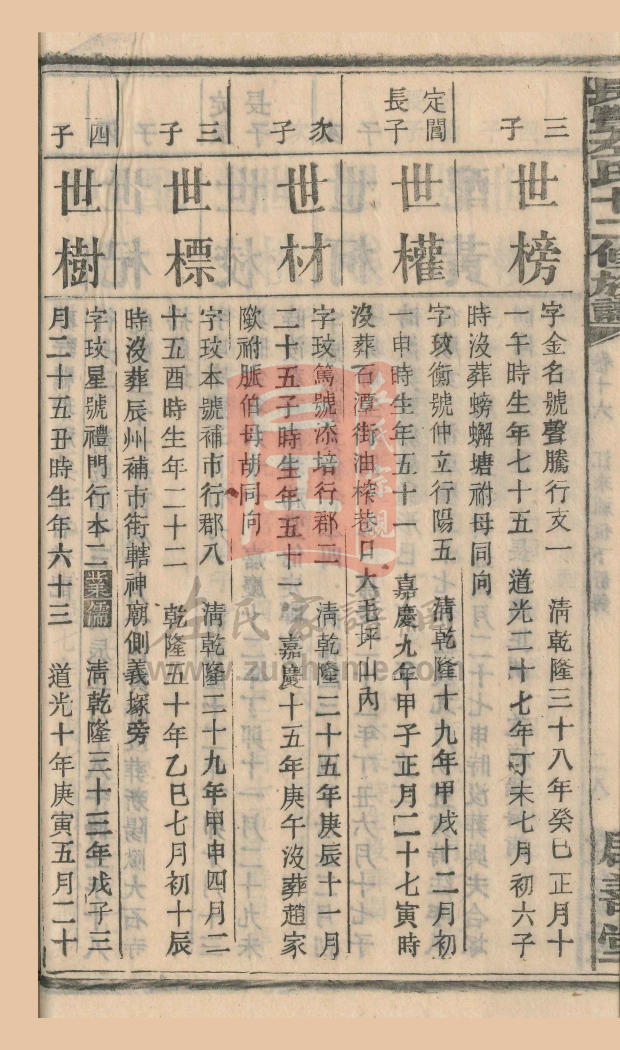 三子
世榜
字金名號聲騰行支一　清乾隆三十八年癸巳正月十
一午時生年七十五　道光二十七年丁未七月初六子
時沒葬螃蠏塘祔母同向
定閶長子
世權
字玟衡號仲立行陽五　清乾隆十九年甲戌十二月初
一申時生年五十一　嘉慶九年甲子正月二十七寅時
沒葬石潭街油榨巷口大毛坪山內
次子
世材
字玟篤號添培行郡二　清乾隆二十五年庚辰十一月
二十五子時生年五十一　嘉慶十五年庚午沒葬趙家
隞祔脈伯母胡同向
三子
世標
字玟本號補市行郡八　清乾隆二十九年甲申四月二
十五酉時生年二十二　乾隆五十年乙巳七月初十辰
時沒葬辰州補市街轄神廟側義塚旁
四子
世樹
字玟星號禮門行本二業儒　清乾隆三十三年戊子三
月二十五丑時生年六十三　道光十年庚寅五月二十
www.zuphome.com